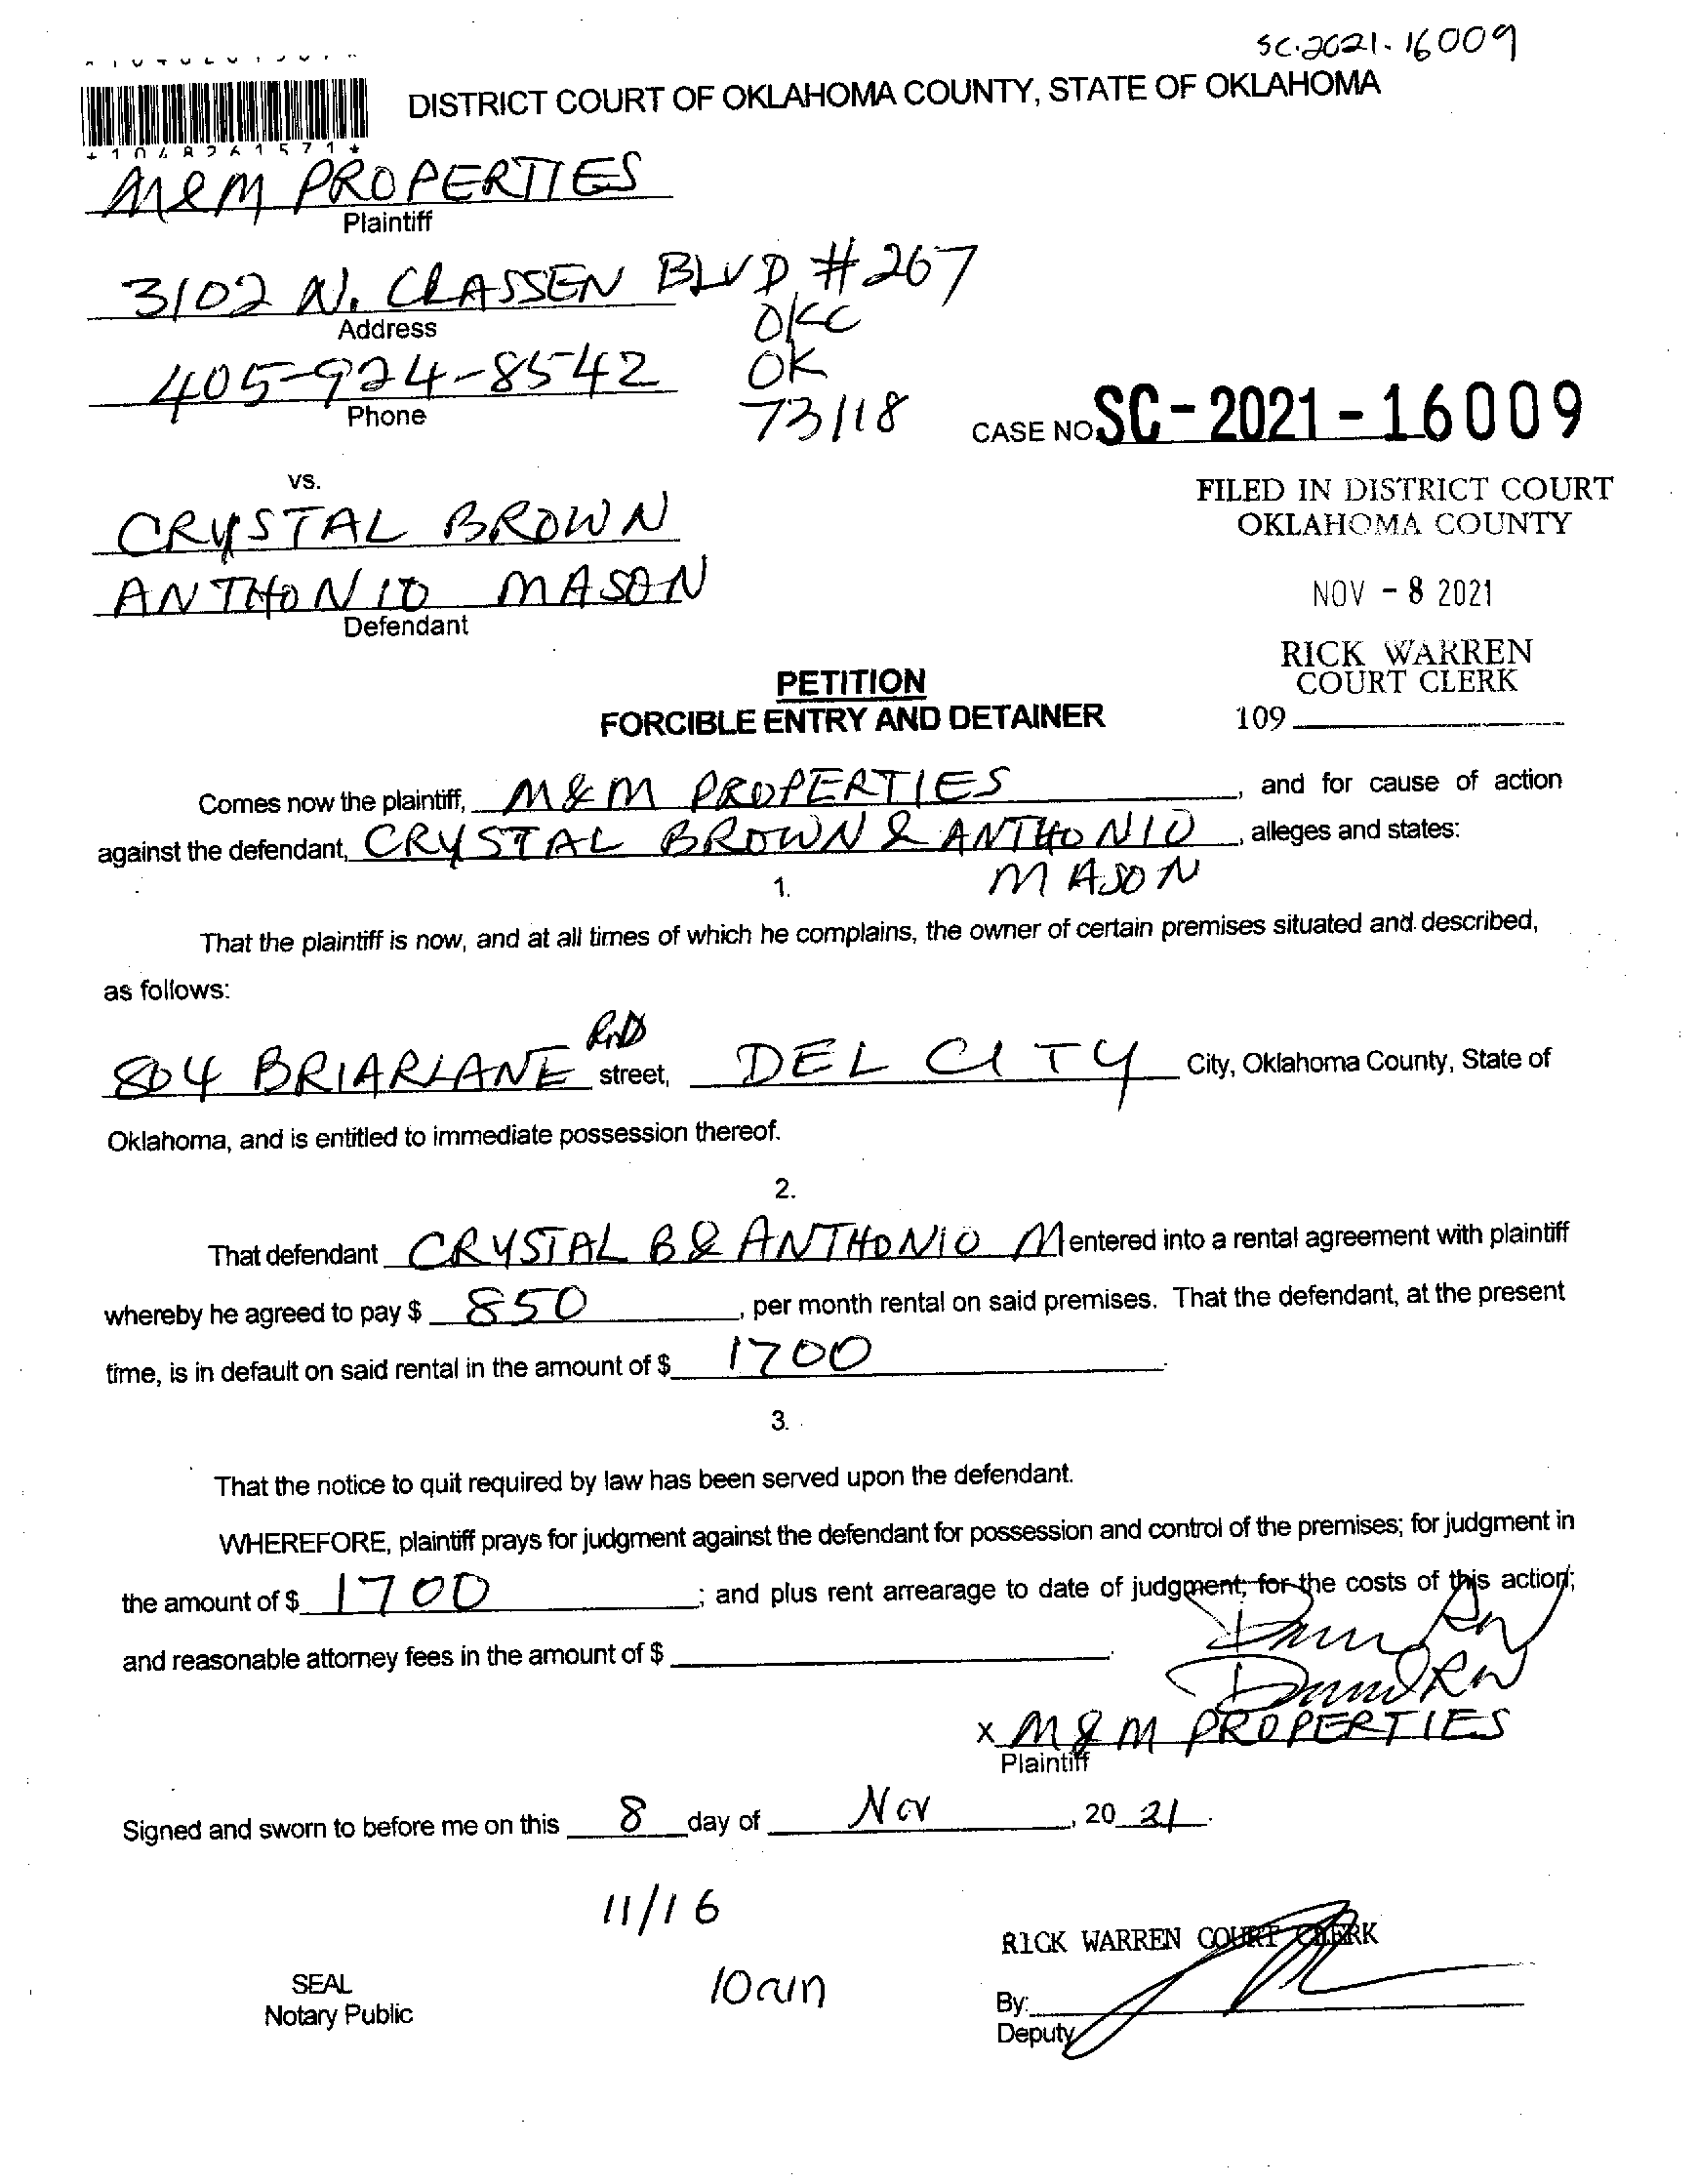 SC-2021-16009
DISTRICT COURT OF OKLAHOMA COUNTY, STATE OF OKLAHOMA
*1048261571*
M&M PROPERTIES
Plaintiff
3102 N. CLASSEN BLVD #267
Address
OKC
405-924-8542
OK
Phone
73118
CASE NO. SC-2021-16009
vs.
FILED IN DISTRICT COURT
CRYSTAL BROWN
OKLAHOMA COUNTY
ANTHONIO MASON
NOV - 8 2021
Defendant
RICK WARREN
COURT CLERK
PETITION
109
FORCIBLE ENTRY AND DETAINER
Comes now the plaintiff, M&M PROPERTIES, and for cause of action
against the defendant, CRYSTAL BROWN & ANTHONIO, alleges and states:
MASON
1.
That the plaintiff is now, and at all times of which he complains, the owner of certain premises situated and described,
as follows:
804 BRIARLANE street, DEL CITY City, Oklahoma County, State of
Oklahoma, and is entitled to immediate possession thereof.
2.
That defendant CRYSTAL B & ANTHONIO M entered into a rental agreement with plaintiff
whereby he agreed to pay $ 850, per month rental on said premises. That the defendant, at the present
time, is in default on said rental in the amount of $ 1700.
3.
That the notice to quit required by law has been served upon the defendant.
WHEREFORE, plaintiff prays for judgment against the defendant for possession and control of the premises; for judgment in
the amount of $ 1700; and plus rent arrearage to date of judgment; for the costs of this action;
and reasonable attorney fees in the amount of $
x M&M PROPERTIES
Plaintiff
Signed and sworn to before me on this 8 day of Nov, 20 21.
11/16
RICK WARREN COURT CLERK
SEAL
10am
Notary Public
By:
Deputy